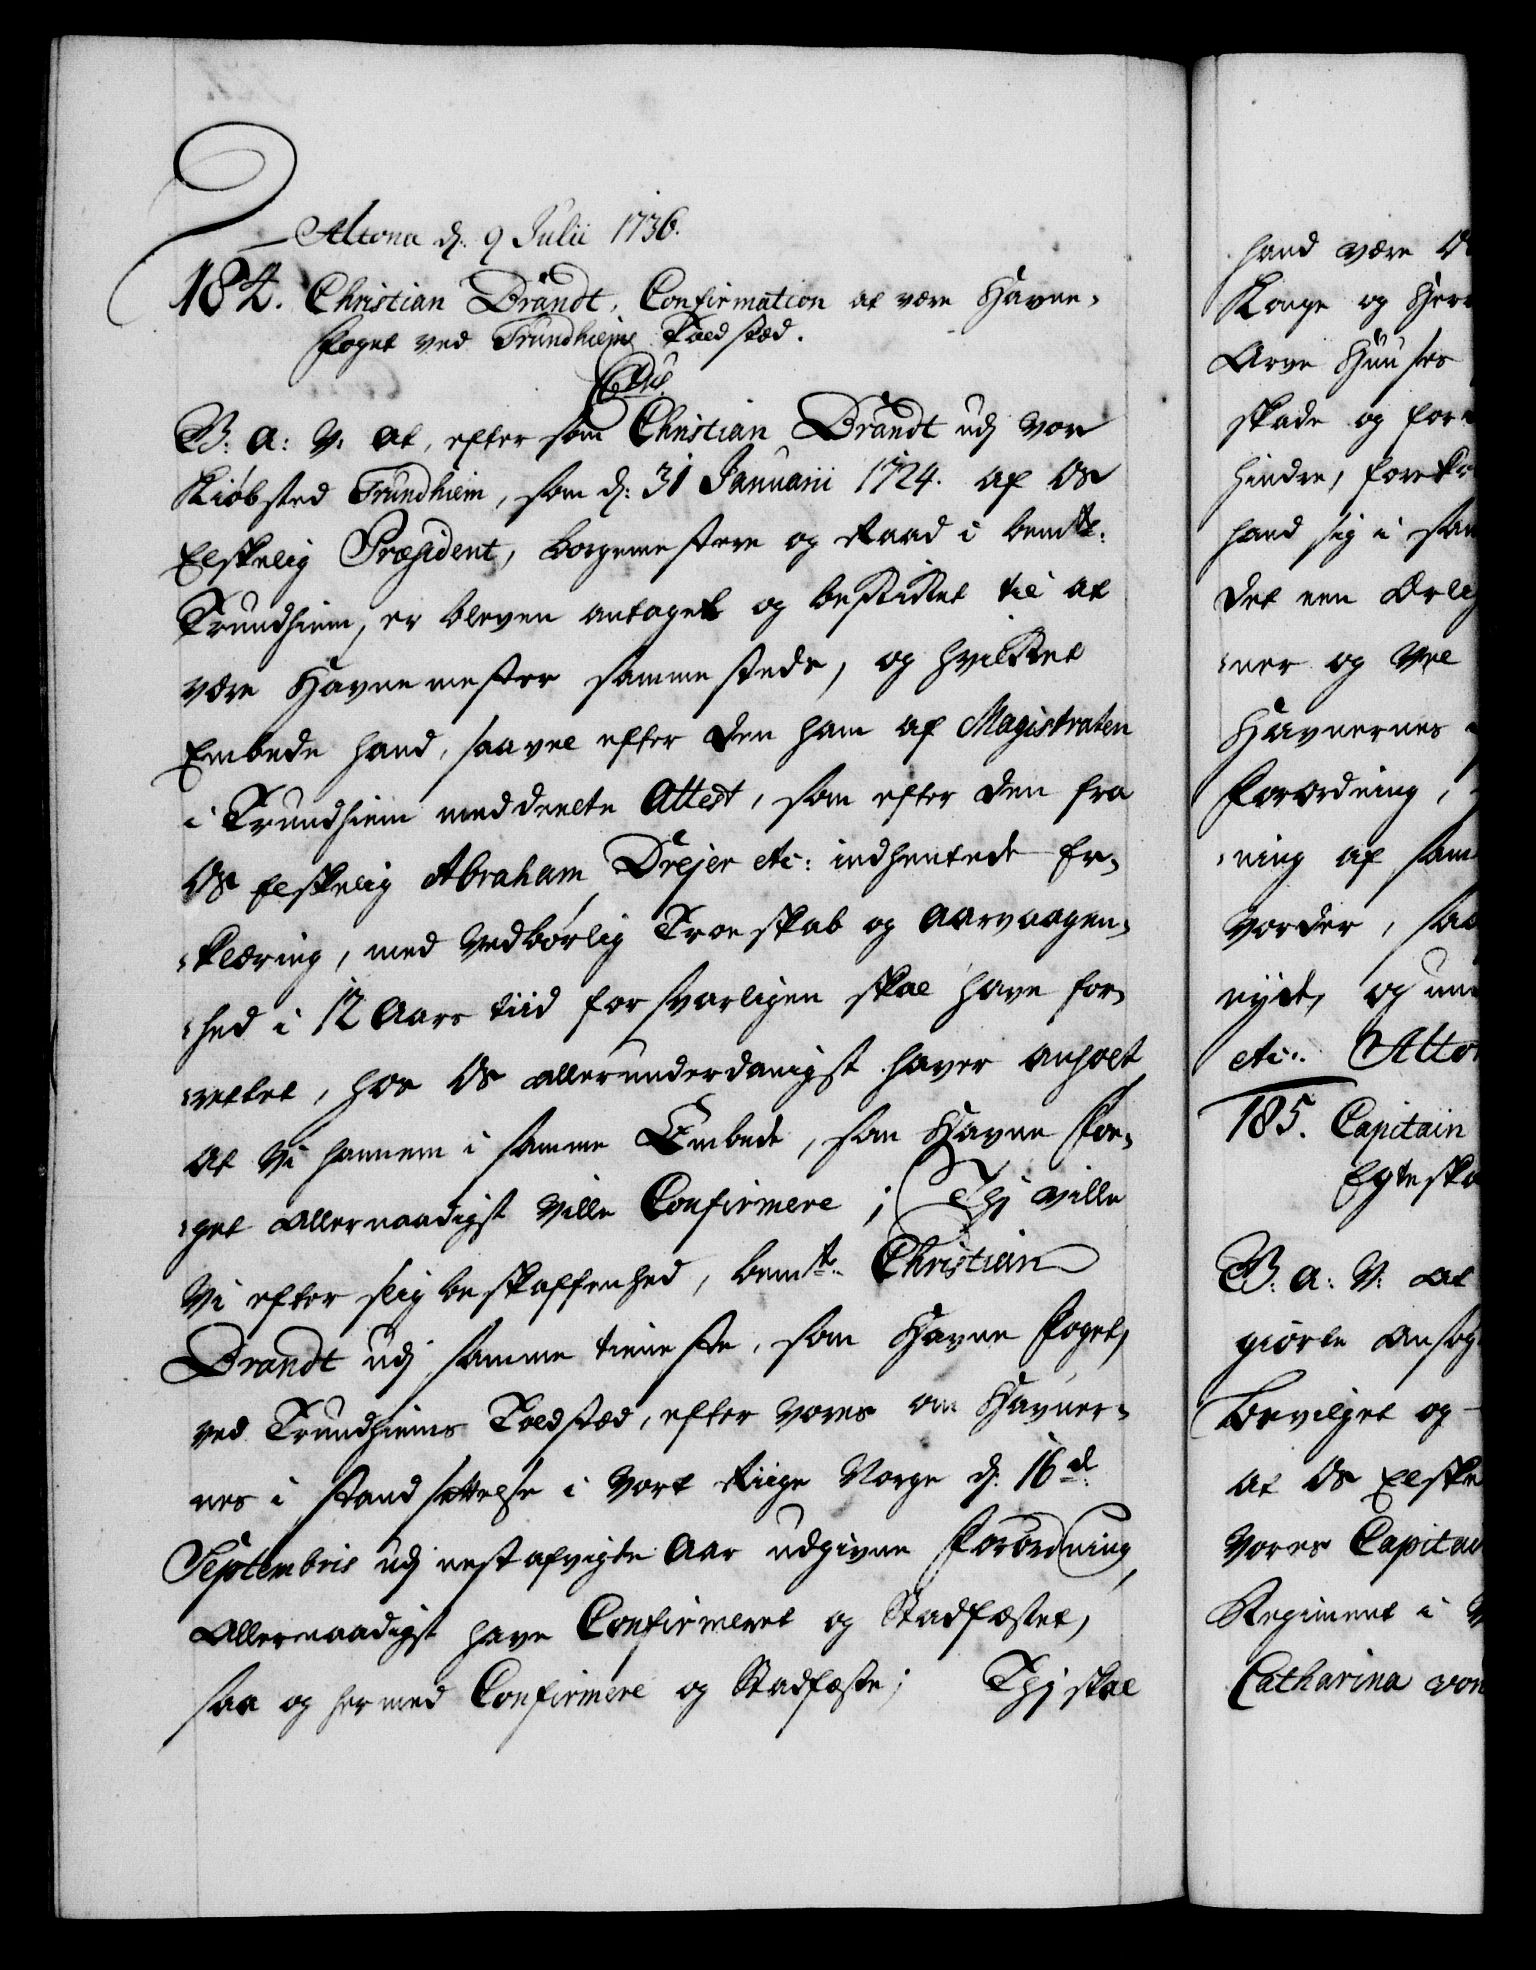 Altona d. 9 Julii 1736.
184. Christian Brandt, Confirmation at være Havne-
foget ved Trundhiems Toldsted.
C6tus.
G: A: V: at, efter som Christian Brandt udj vor
Kiøbsted Trundhiem, som d: 31 Januarii 1724. af Os
Elskelig Præsident, Borgemestere og Raad i bemte:
Trundhiem, er bleven antaget og beskikket til at
være Havnemester sammesteds, og hvilket
Embede hand, saavel efter den ham af Magistraten
i Trundhiem meddeelte Attest, som efter den fra
Os Elskelig Abraham Drejer etc: indhentede Er-
klæring, med vedbørlig Troeskab og Aarvaagen-
hed i 12 Aars tiid forsvarligen skal have for-
rettet, hos Os allerunderdanigst haver anholt
At Vi hannem i samme Embede, som Havne Fo-
get allernaadigst ville Confirmere; Thj ville
Vi efter slig beskaffenhed, bemte: Christian
Brandt udj samme tieneste, som Havne foget,
ved Trundhiems Toldsted, efter vores om Havner-
nes i stand sættelse i Vort Riige Norge d. 16de
Septembris udj nestafvigte Aar udgivne Forordning,
Allernaadigst have Confirmeret og Stadfæstet,
saa og hermed Confirmere og Stadfæste; Thj skal
hand være
Konge og Herr
Arve Huuses
skade og for
hindre, forek
hand sig i sam
det een Ærlig
ner og vel
Havnernes
Forordning,
ning af sam
vorder, saa
nyde, og
etc: Alto
185. Capitain
Egteska
G: A: V: at
giorte ansøg
Bevilget og
at Os Elske
Vores Capitai
Regiment i
Catharina von